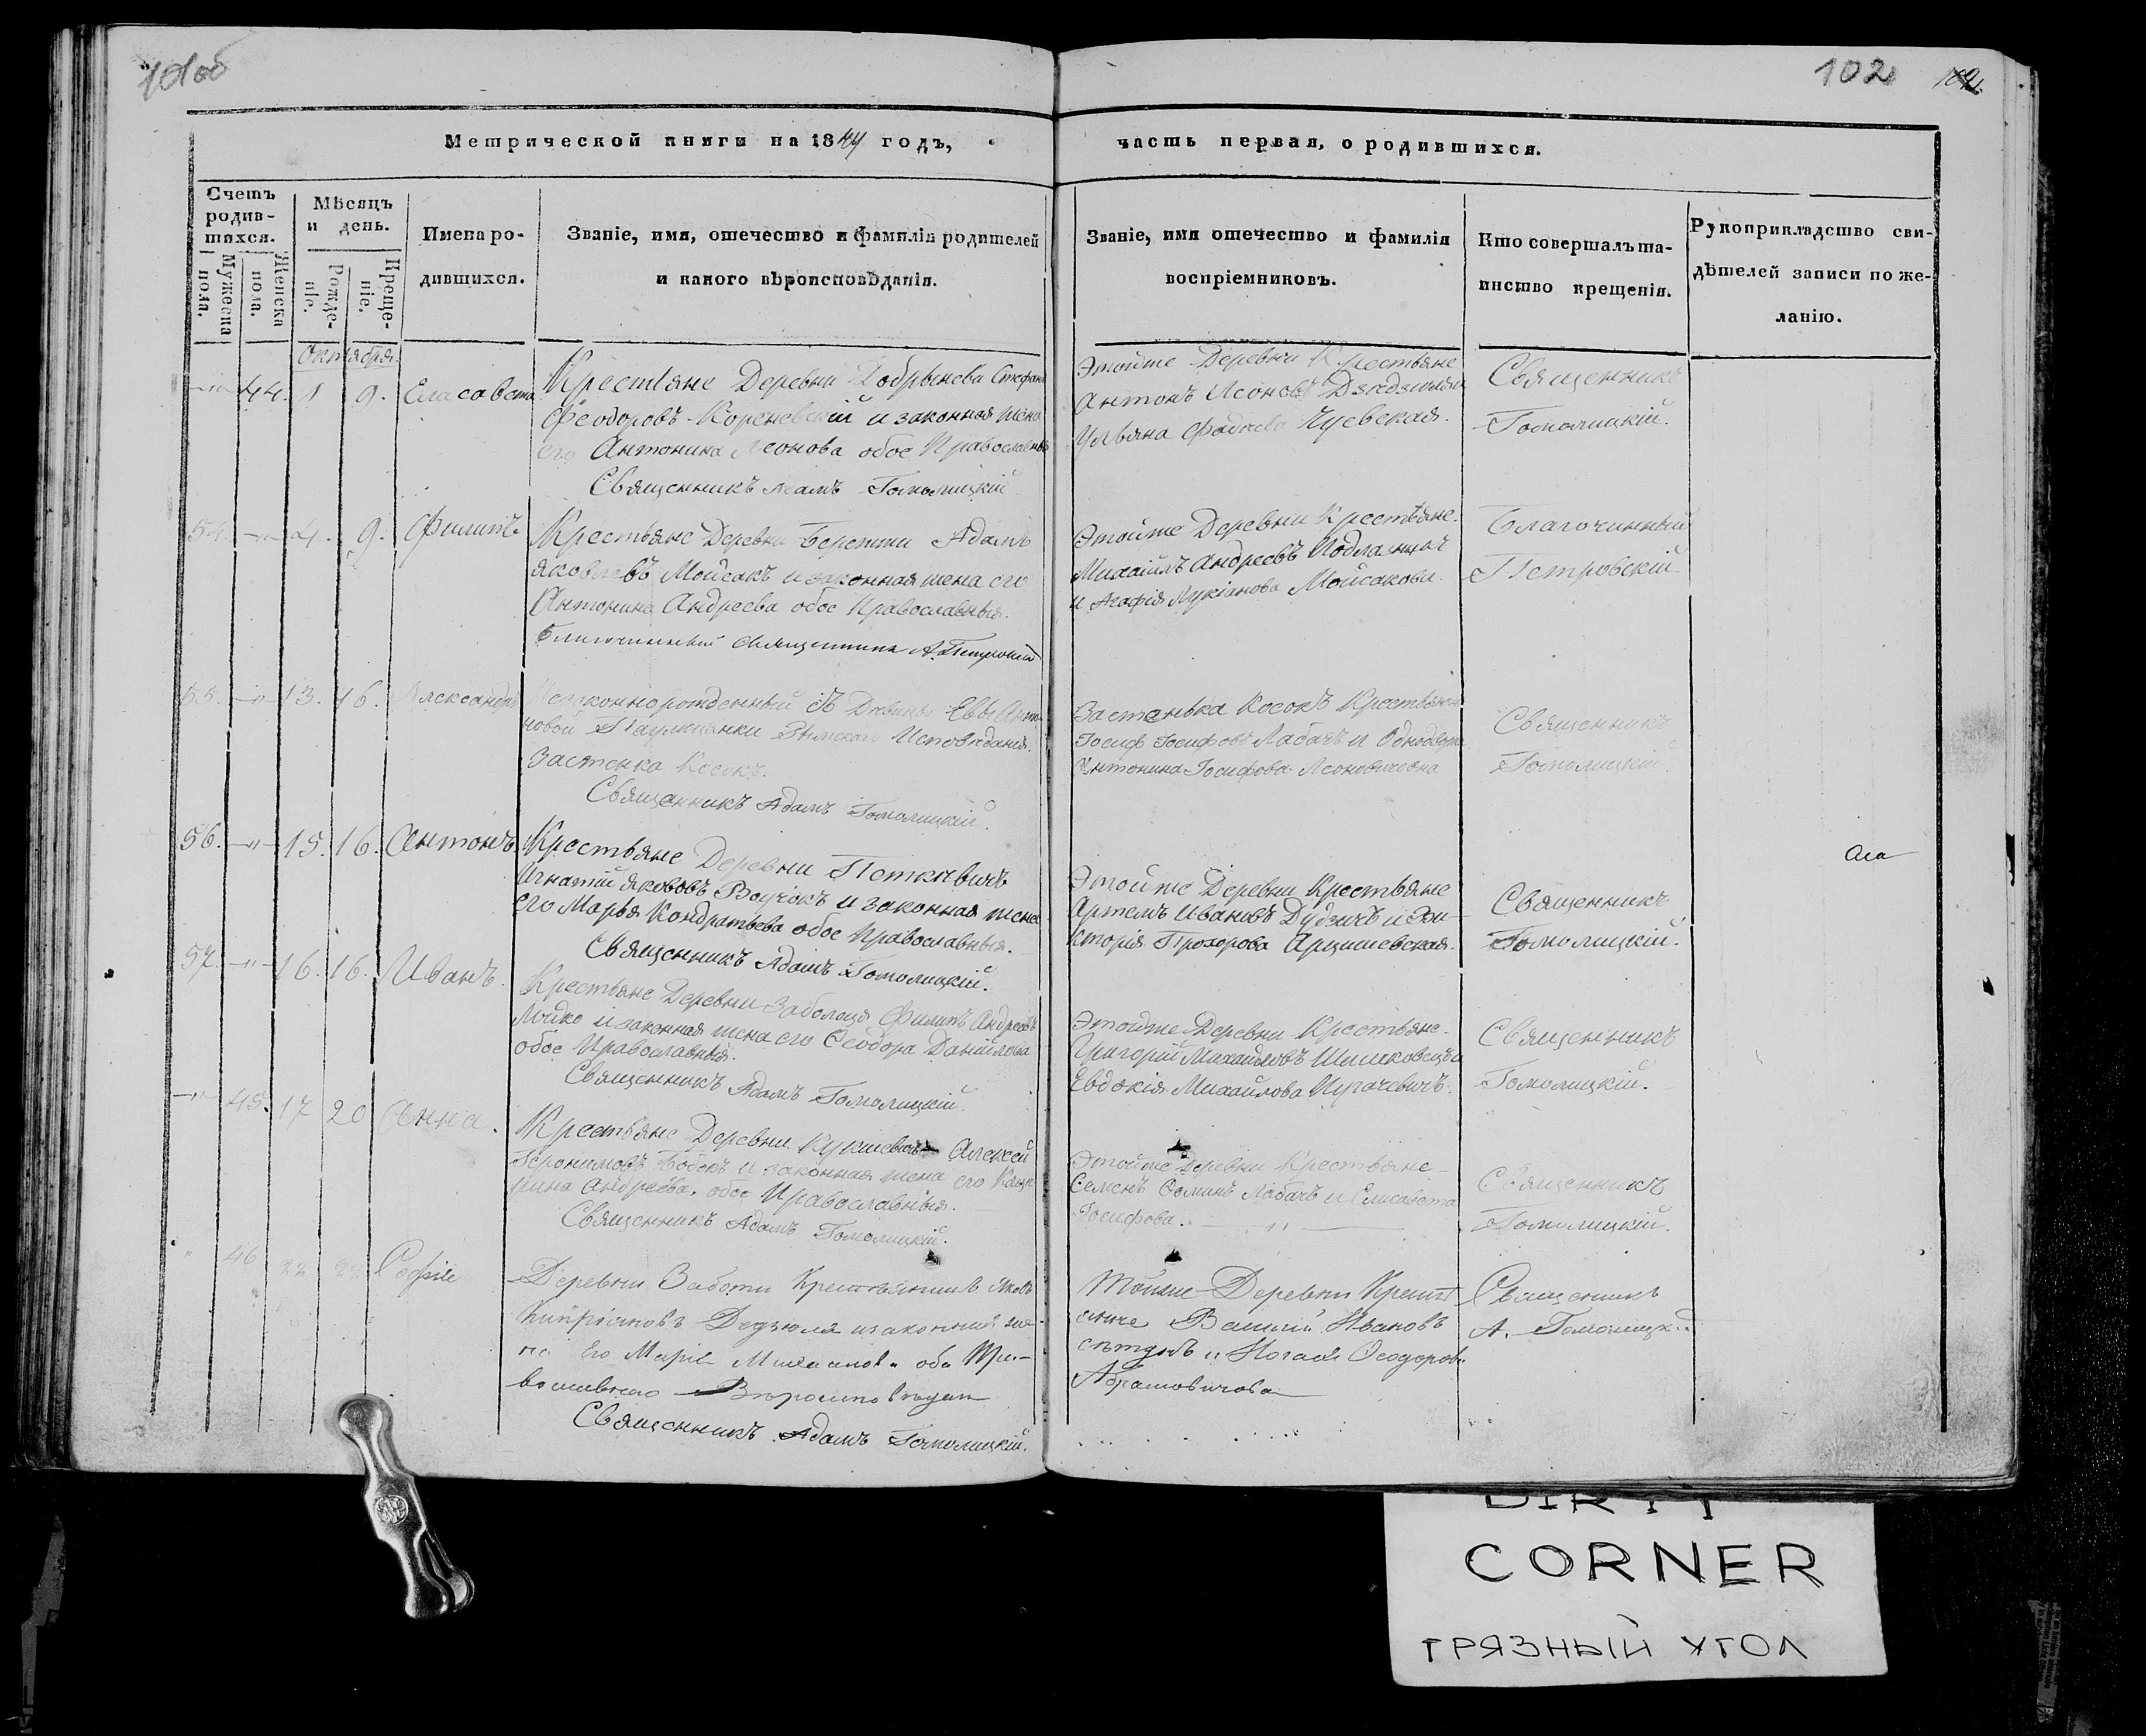 101об
102
Метрической книги на 1844 годъ,
часть первая, о родившихся.
Счетъ родив-
шихся.
Мужеска пола.
Женска пола.
Мѣсяцъ и день.
Рожде-
ніе.
Креще-
ніе.
Имена ро-
дившихся.
Званіе, имя, отечество и фамилія родителей
и какого вѣроисповѣданія.
Званіе, имя отечество и фамилія
воспріемниковъ.
Кто совершалъ та-
инство крещенія.
Рукоприкладство сви-
дѣтелей записи по же-
ланію.
Октября.
44. 1 9. Елисавета
Крестьяне Деревни Добрынева Стефанъ
Феодоровъ Кореневскій и законная жена
его Антонина Леонова обое Православныя
Священникъ Адамъ Гомолицкій
Этойже Деревни Крестьяне
Антонъ Леоновъ
Ульяна Фадеева Чуевская.
Священникъ
Гомолицкій.
54. 4. 9. Филипъ
Крестьяне Деревни Бережни Адамъ
Яковлевъ Мойсакъ и законная жена его
Антонина Андреева обое Православныя.
Благочинный Священникъ А. Петровскій
Этойже Деревни Крестьяне.
Михаилъ Андреевъ
и Агафія Лукіанова Мойсакова.
Благочинный
Петровскій.
55. 13. 16. Александръ
Незаконнорожденный отъ Дѣвицы Евы Анто-
новой Римскаго Исповѣданія.
Застенка Косокъ.
Священникъ Адамъ Гомолицкій.
Застенька Косокъ Крестьянинъ
Іосифъ Іосифовъ Лабачъ и
Антонина Іосифова Леоновичевна
Священникъ
Гомолицкій.
56. 15. 16. Антонъ
Крестьяне Деревни Петкевичъ
Игнатій Яковлевъ Волчокъ и законная жена
его Марья Кондратьева обое Православныя.
Священникъ Адамъ Гомолицкій.
Этойже Деревни Крестьяне
Артемъ Ивановъ Дудзичъ и Ви-
кторія Прохорова Арцишевская.
Священникъ
Гомолицкій.
57. 16. 16. Иванъ.
Крестьяне Деревни Заболоця Филипъ Андреевъ
Лойко и законная жена его Феодора Даніилова
обое Православныя.
Священникъ Адамъ Гомолицкій.
Этойже Деревни Крестьяне.
Григорій Михайловъ и
Евдокія Михайлова
Священникъ
Гомолицкій.
45. 17 20 Анна.
Крестьяне Деревни Кукшевичъ Алексей
Іеронимовъ Бобокъ и законная жена его Кате-
рина Андреева, обое Православныя.
Священникъ Адамъ Гомолицкій.
Этойже Деревни Крестьяне
Семенъ Фоминъ Лабачъ и Елисавета
Іосифова.
Священникъ
Гомолицкій.
46 22 Софія
Деревни Крестьянинъ Яковъ
Кипріановъ Дедзюля и законная же-
на Его Марія оба Пра-
вославнаго Вѣроисповѣдан
Священникъ Адамъ Гомолицкій.
Тойже Деревни Крест
яне Ивановъ
и Феодорова
Абрамовичова
Священникъ
А. Гомолицкій
DIRTY
CORNER
ГРЯЗНЫЙ УГОЛ